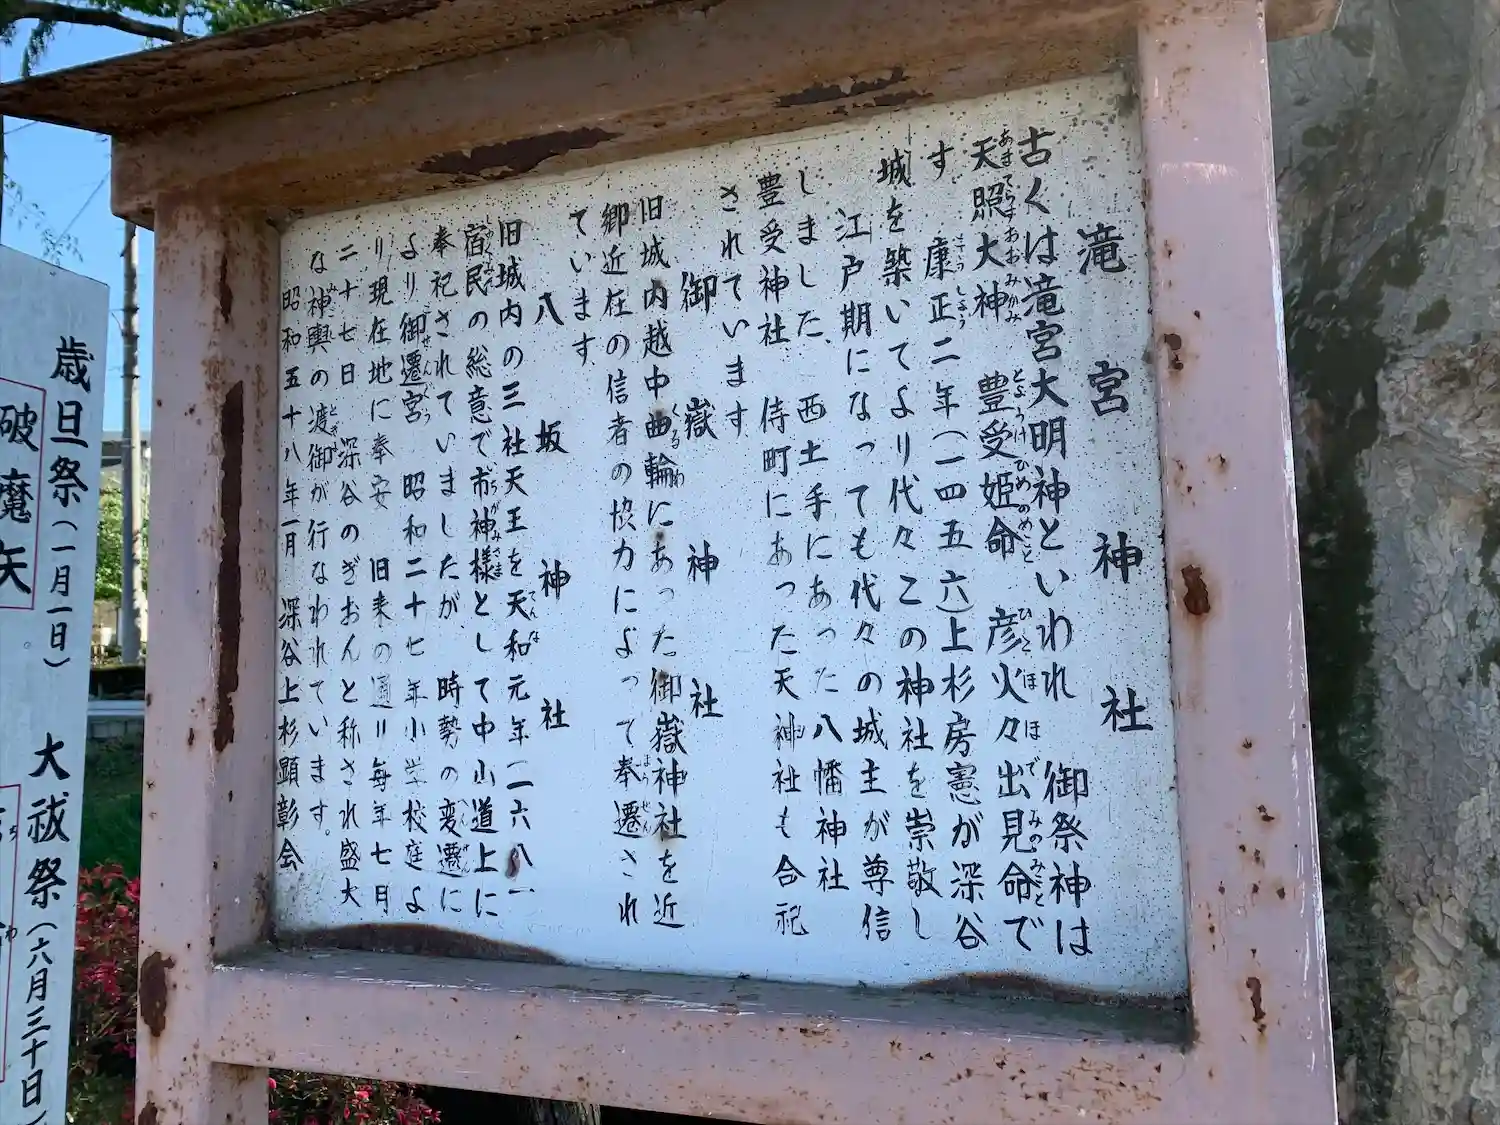 滝宮神社
古くは滝宮大明神といわれ 御祭神は
天照大神 豊受姫命 彦火々出見命で
す 康正二年(一四五六)上杉房憲が深谷
城を築いてより代々この神社を崇敬し
江戸期になっても代々の城主が尊信
しました、西土手にあった八幡神社
豊受神社、侍町にあった天神社も合祀
されています。
御嶽神社
旧城内越中曲輪にあった御嶽神社を近
郷近在の信者の協力によって奉遷され
ています。
八坂神社
旧城内の三社天王を天和元年(一六八一
宿民の総意で市神様として中山道上に
奉祀されていましたが、時勢の変遷に
より御遷宮 昭和二十七年小学校庭よ
り現在地に奉安 旧来の通り毎年七月
二十七日 深谷のぎおんと称され盛大
な神輿の渡御が行なわれています。
昭和五十八年一月 深谷上杉顕彰会
歳旦祭(一月一日)
大祓祭(六月三十日)
破魔矢